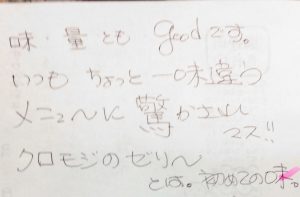 味・量とも goodです。
いつも ちょっと 一味違う
メニューに 驚かされ
マス!!
クロモジのゼリー
とは。初めての味。